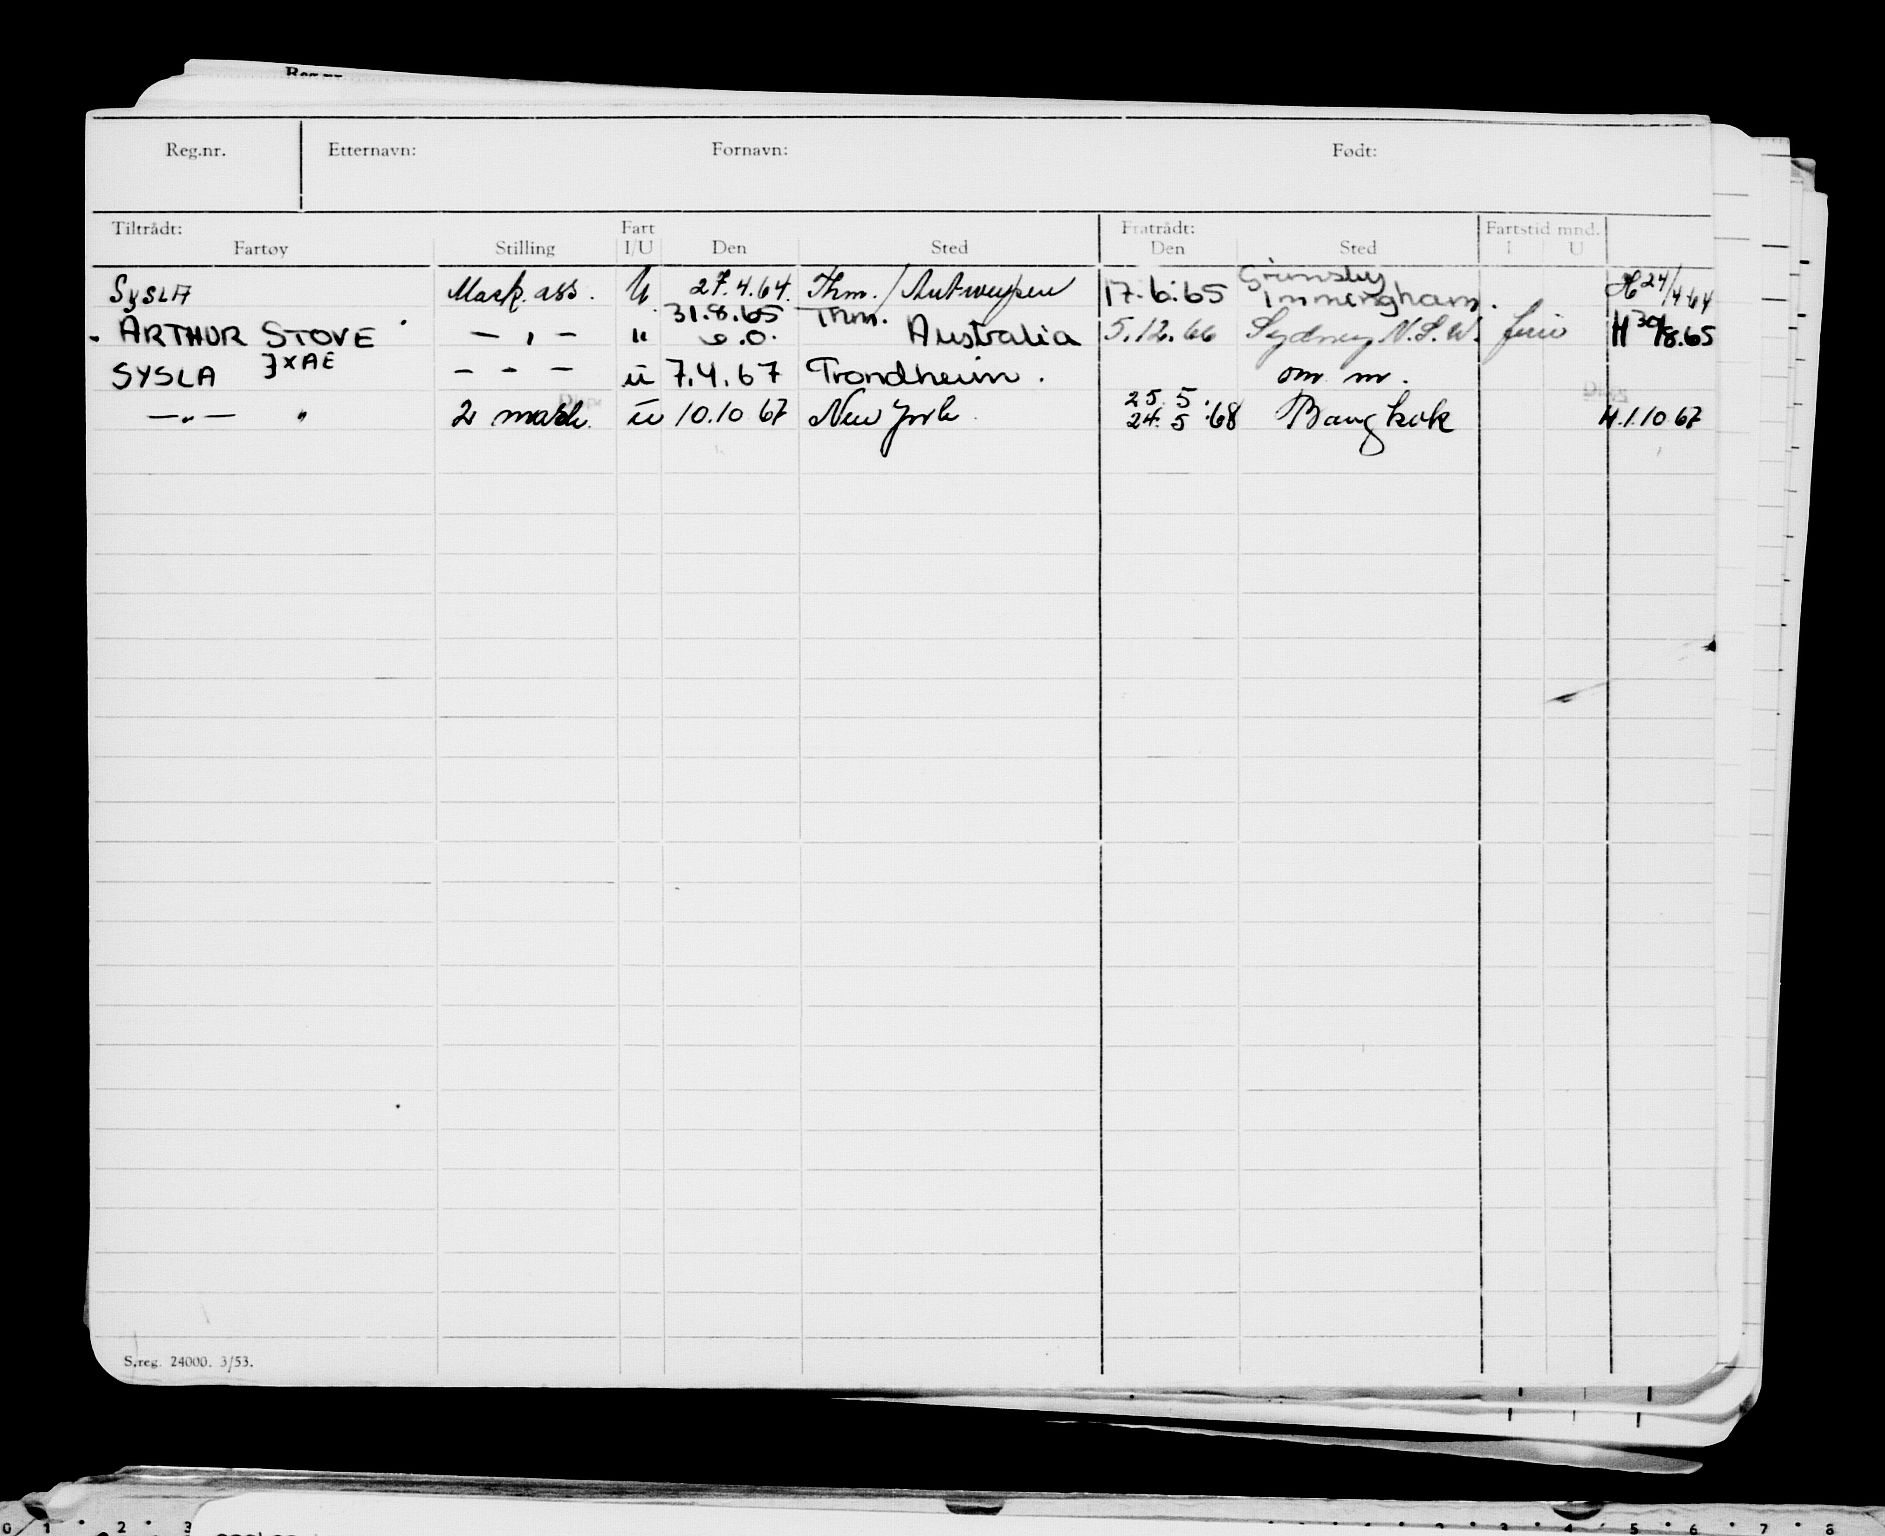 Reg.nr.
Reg.nr. Etternavn: Fornavn: Født:
Tiltrådt: Fart Fratrådt: Fartstid mnd.
Fartøy Stilling I/U Den Sted Den Sted I U
SYSLA Mask. ass. U 27.4.64. Thm. / Antwerpen 17.6.65 Grimsby Immingham. H 24/4 64
ARTHUR STOVE — " — " 31.8.65 Thm. Australia 5.12.66 Sydney N.S.W. ferie H 30/8.65
SYSLA JXAE — " — u 7.4.67 Trondheim. om m.
— " — " 2 mask. u 10.10 67 New York 25. 5. 24. 5 .68 Bangkok H.1.10 67
S.reg. 24000. 3/53.